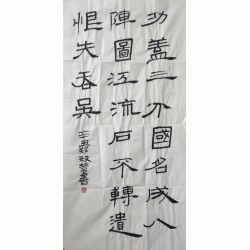 功蓋三分國名成八
陣圖江流石不轉遺
恨失吞吳
辛丑書